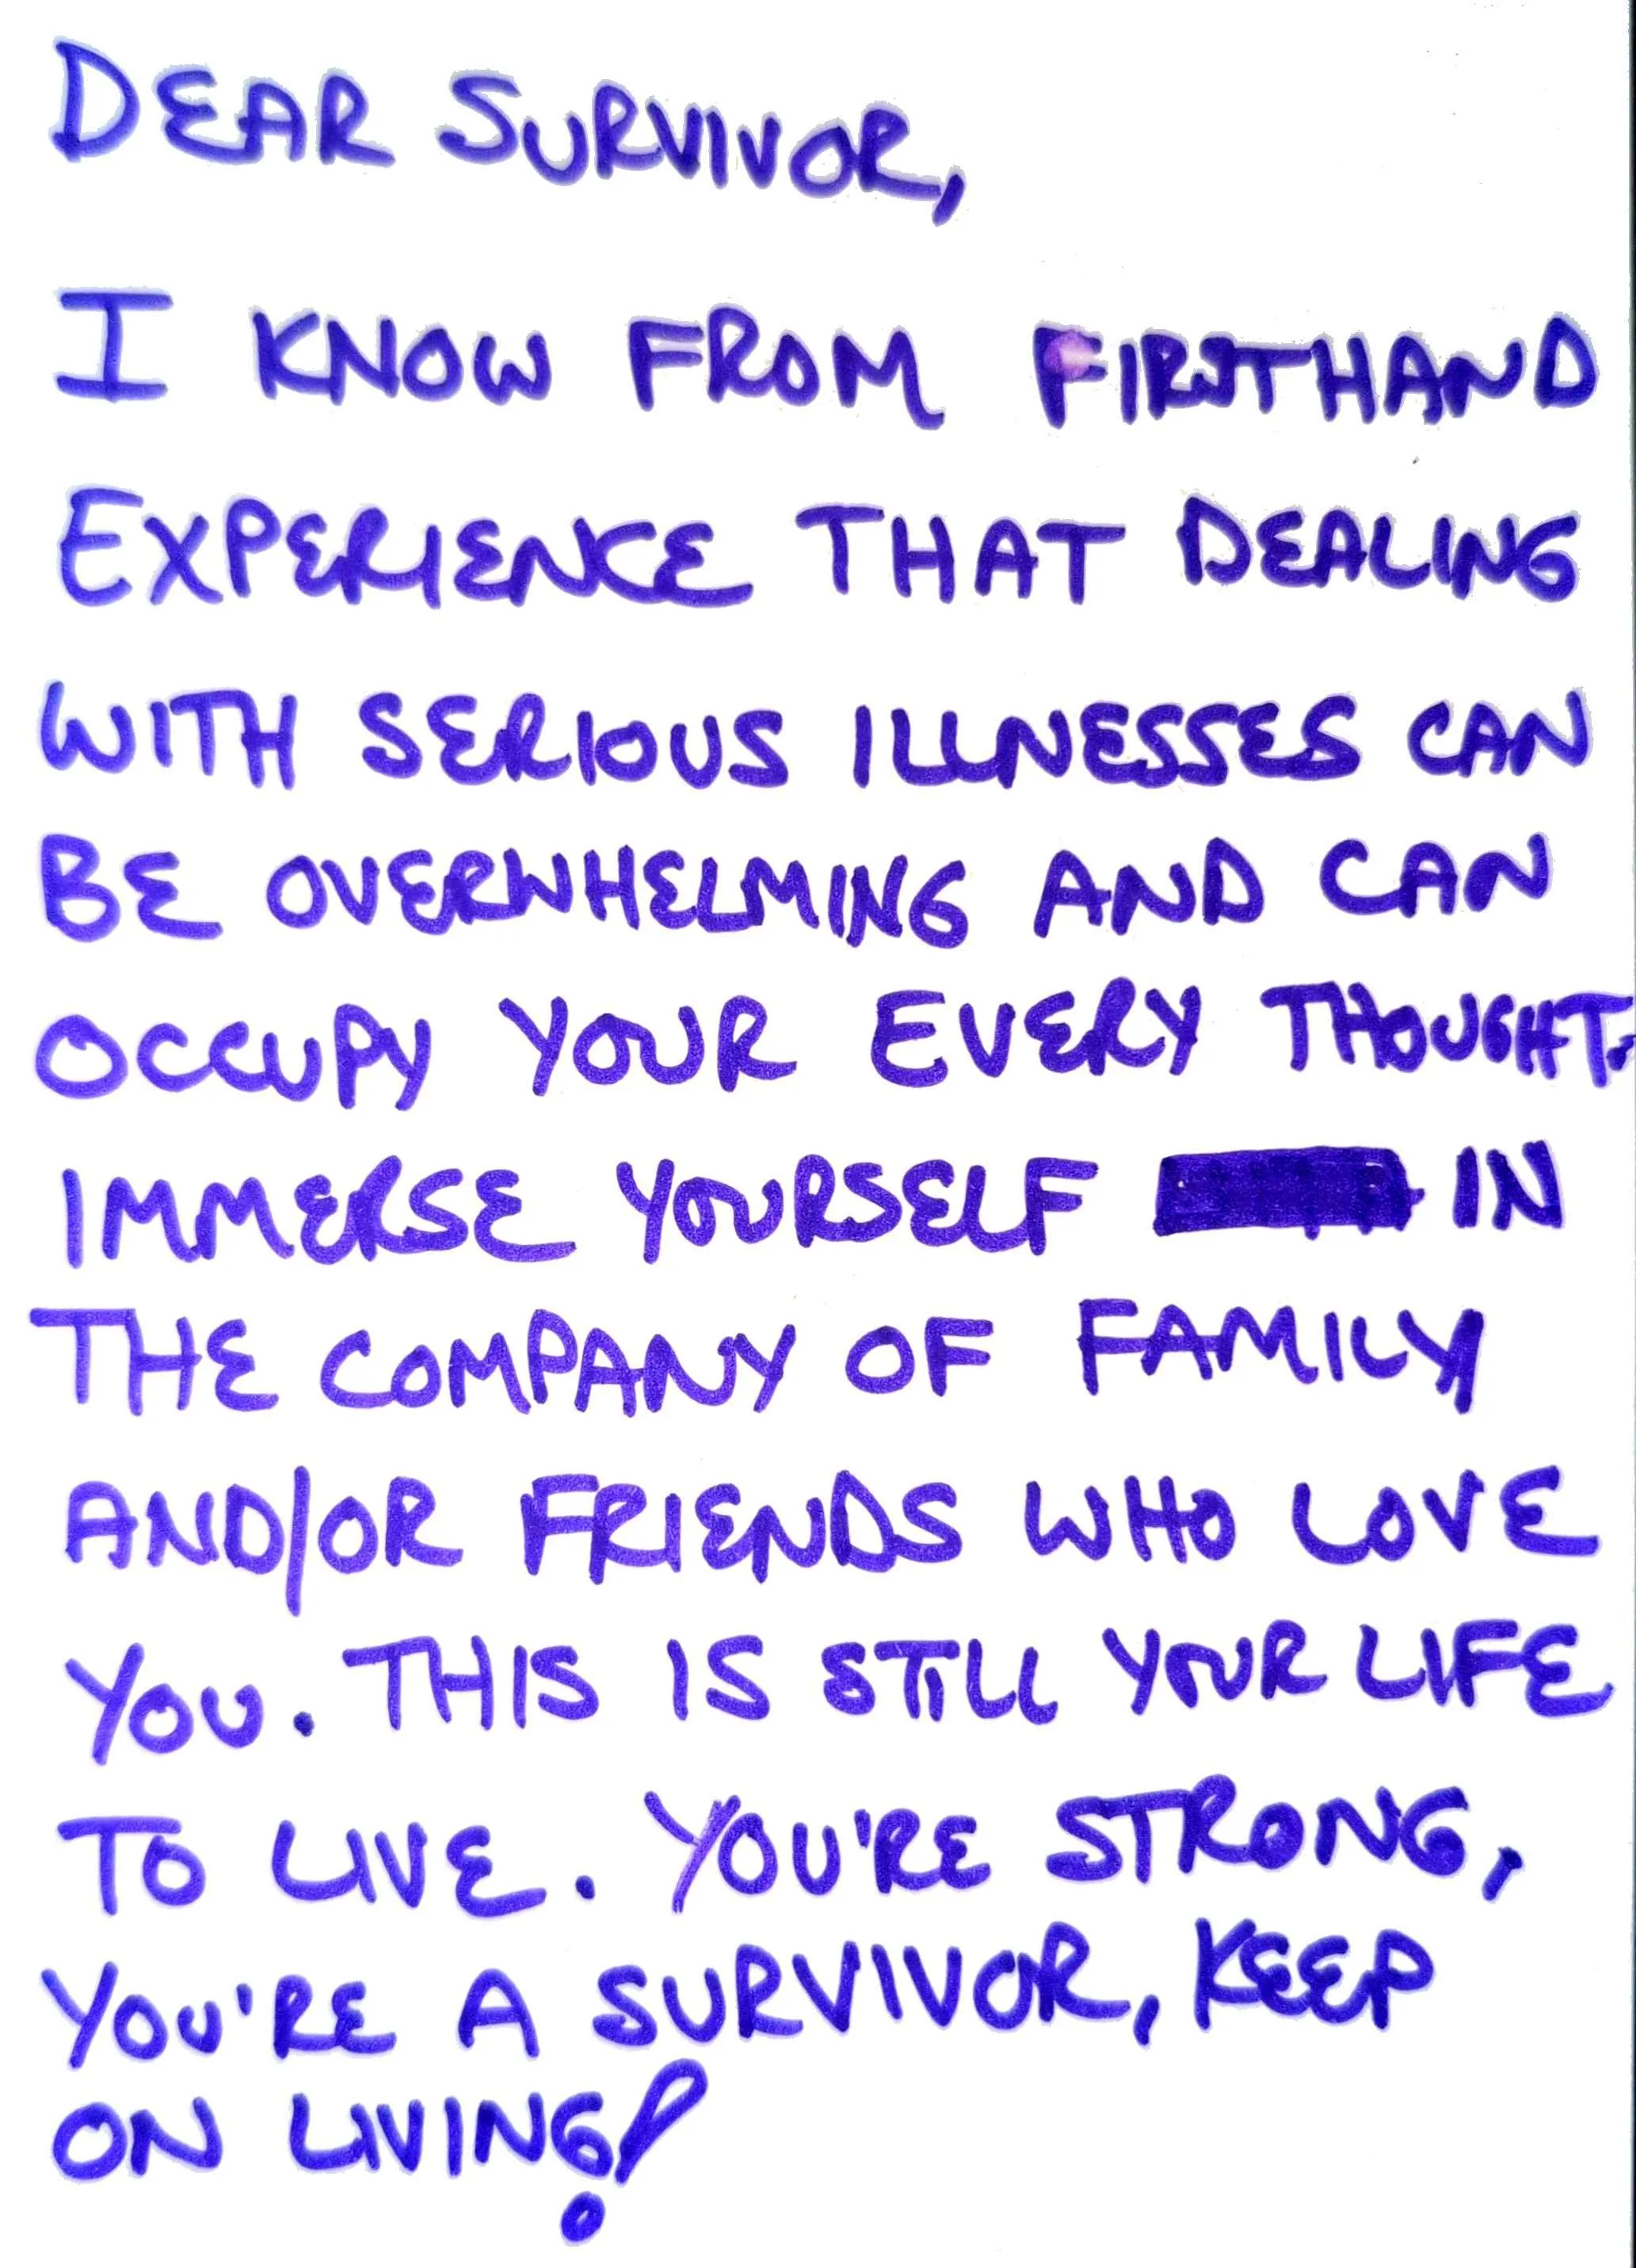 DEAR SURVIVOR,
I KNOW FROM FIRSTHAND
EXPERIENCE THAT DEALING
WITH SERIOUS ILLNESSES CAN
BE OVERWHELMING AND CAN
OCCUPY YOUR EVERY THOUGHT.
IMMERSE YOURSELF IN
THE COMPANY OF FAMILY
AND/OR FRIENDS WHO LOVE
YOU. THIS IS STILL YOUR LIFE
TO LIVE. YOU'RE STRONG,
YOU'RE A SURVIVOR, KEEP
ON LIVING!